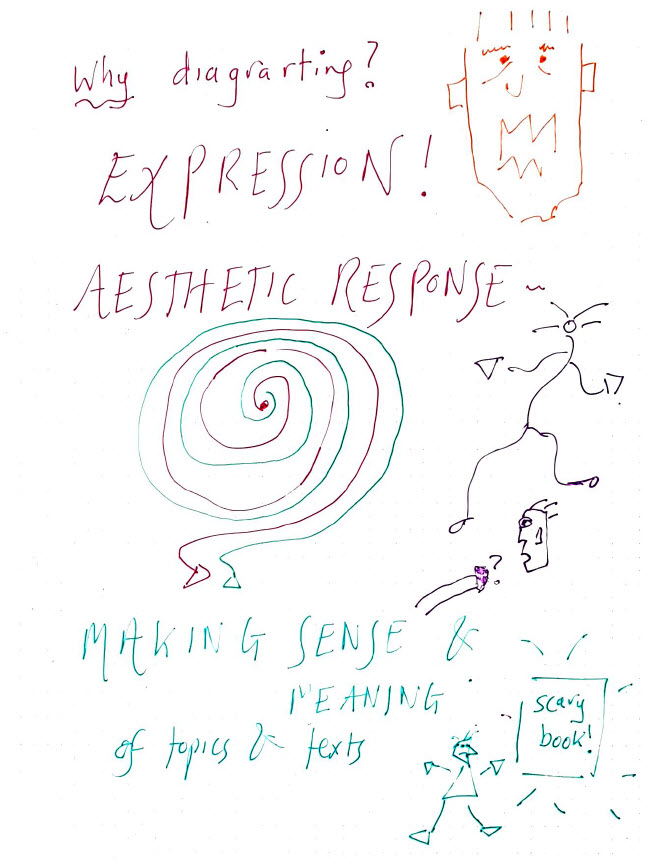 Why diagrarting?
EXPRESSION!
AESTHETIC RESPONSE ~
?
MAKING SENSE &
MEANING
of topics & texts
scary
book!